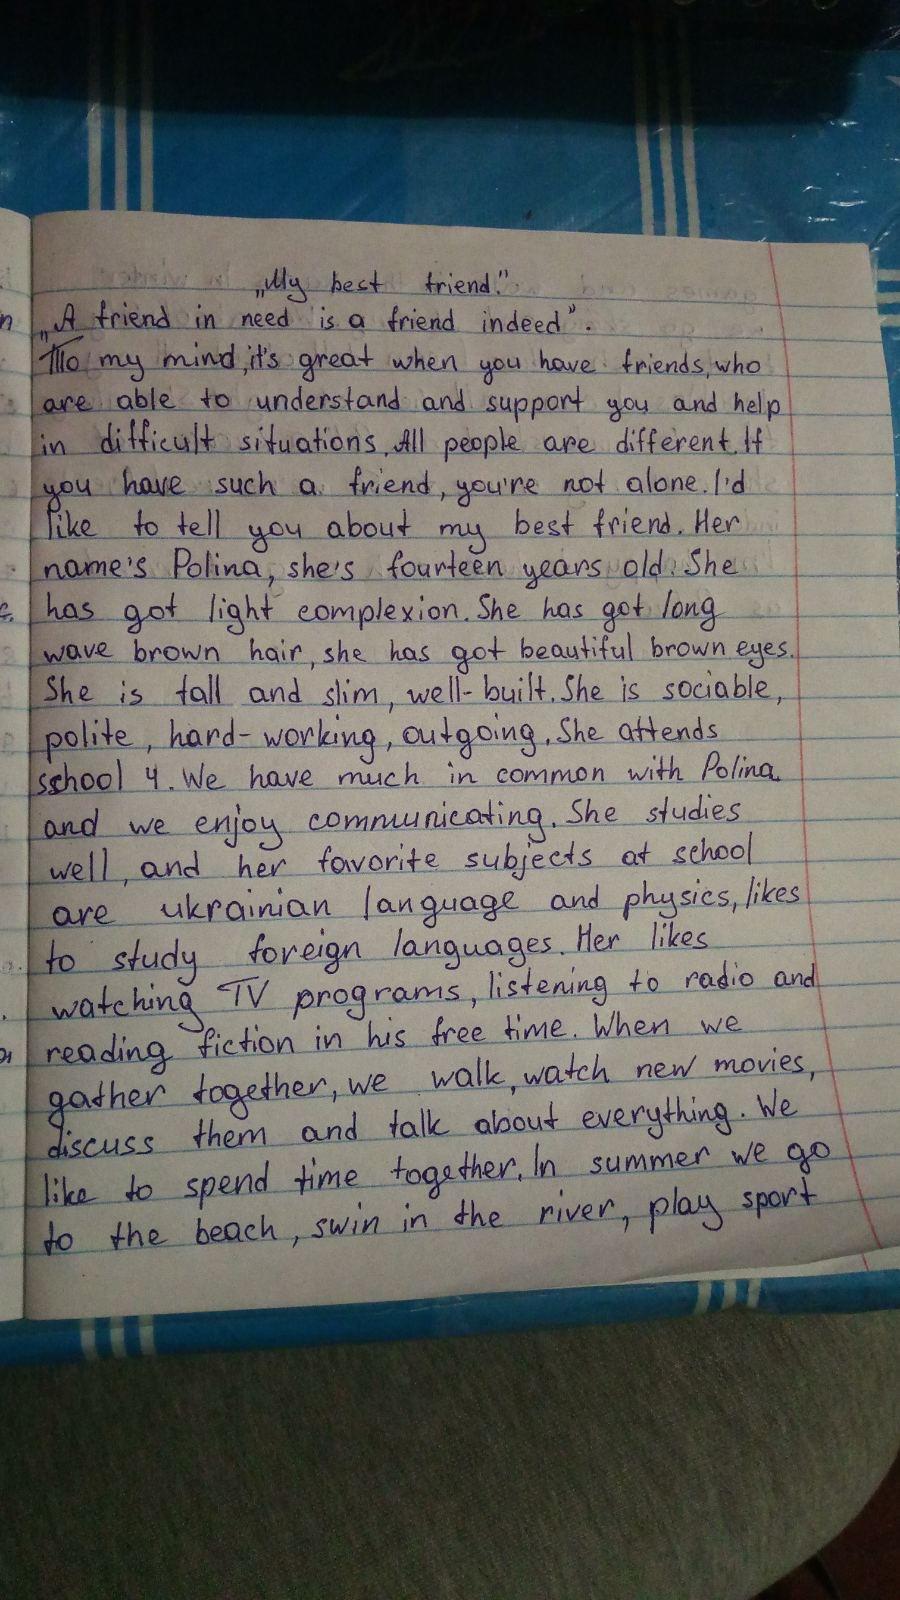 „My best friend."
„A friend in need is a friend indeed".
To my mind, it's great when you have friends, who
are able to understand and support you and help
in difficult situations. All people are different. If
you have such a friend, you're not alone. I'd
like to tell you about my best friend. Her
name's Polina, she's fourteen years old. She
has got light complexion. She has got long
wave brown hair, she has got beautiful brown eyes.
She is tall and slim, well-built. She is sociable,
polite, hard-working, outgoing. She attends
school 4. We have much in common with Polina
and we enjoy communicating. She studies
well, and her favorite subjects at school
are ukrainian language and physics, likes
to study foreign languages. Her likes
watching TV programs, listening to radio and
reading fiction in his free time. When we
gather together, we walk, watch new movies,
discuss them and talk about everything. We
like to spend time together. In summer we go
to the beach, swin in the river, play sport